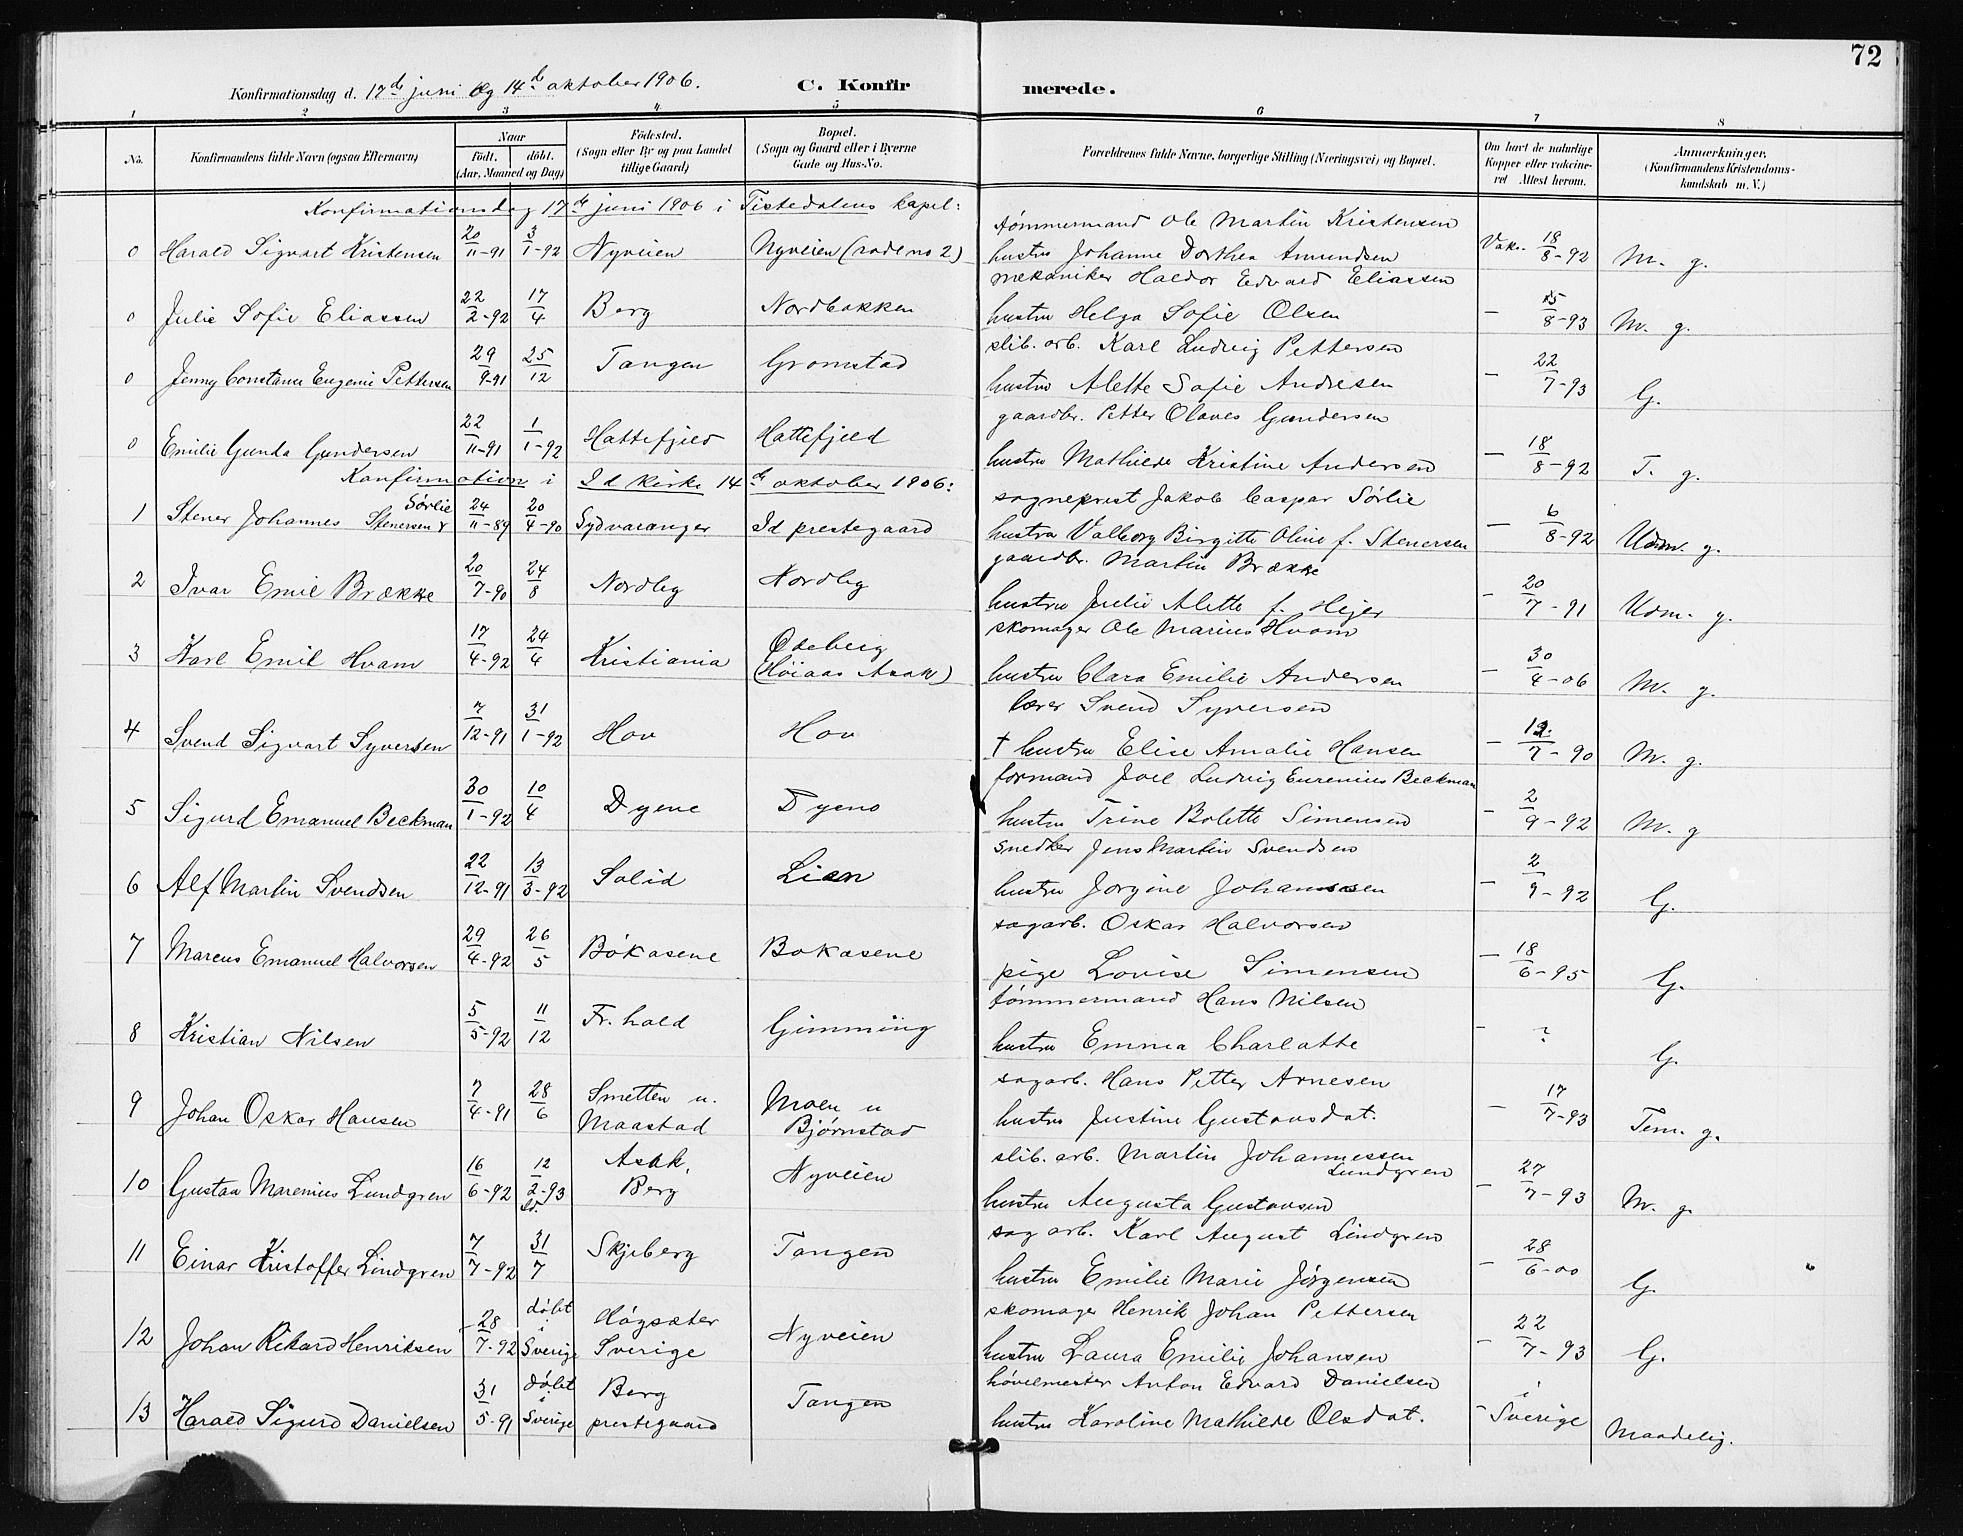 72
Konfirmationsdag d. 17de juni og 14de oktober 1906. C. Konfirmerede.
1 2 3 4 5 6 7 8
No. Konfirmandens fulde Navn (ogsaa Efternavn) Naar født. døbt. (Aar, Maaned og Dag) Fødested. (Sogn eller By og paa Landet tillige Gaard) Bopæl. (Sogn og Gaard eller i Byerne Gade og Hus-No. Forældrenes fulde Navne, borgerlige Stilling (Næringsvei) og Bopæl. Om havt de naturlige Kopper eller vakcineret Attest herom. Anmærkninger. (Konfirmandens Kristendomskundskab m. V.)
Konfirmationsdag 17de juni 1906 i Tistedalens kapel:
tømmermand Ole Martin Kristensen
0 Harald Sigvart Kristensen 20/11-91 3/1-92 Nyveien Nyveien (rode no 2) hustru Johanne Dorthea Amundsen Vakc. 18/8-92 M. g.
mekaniker Haldor Edvard Eliassen
0 Julie Sofie Eliassen 22/2-92 17/4 Berg Nordbakken hustru Helga Sofie Olsen - 15/8-93 M. g.
slib. arb. Karl Ludvig Pettersen
0 Jenny Constance Eugenie Pettersen 29/9-91 25/12 Tangen Gromstad hustru Alette Sofie Andresen - 22/7-93 G.
gaardbr. Petter Olaves Gundersen
0 Emilie Gunda Gundersen 22/11-91 1/1-92 Hattefjeld Hattefjeld hustru Mathilde Kristine Andersen - 18/8-92 T. g.
Konfirmation i Id kirke 14de oktober 1906:
sogneprest Jakob Caspar Sørlie
1 Stener Johannes Stenersen Sørlie 24/11-89 20/4-90 Sydvaranger Id prestegaard hustru Valborg Birgitte Oline f. Stenersen - 6/8-92 Udm. g.
gaardbr. Martin Brække
2 Ivar Emil Brække 20/7-90 24/8 Nordby Nordby hustru Julie Alette f. Hejer - 20/7-91 Udm. g.
skomager Ole Marius Hvam
3 Karl Emil Hvam 17/4-92 24/4 Kristiania Ødeberg (Høiaas Asak) hustru Clara Emilie Andersen - 30/4-06 M. g.
lærer Svend Syversen
4 Svend Sigvart Syversen 7/12-91 31/1-92 Hov Hov † hustru Elise Amalie Hansen - 12/7-90 M. g.
formand Joel Ludvig Eurenius Beckman
5 Sigurd Emanuel Beckman 30/1-92 10/4 Dyene Dyene hustru Trine Bolette Simensen - 2/9-92 M. g
snedker Jens Martin Svendsen
6 Alf Martin Svendsen 22/12-91 13/3-92 Solid Lien hustru Jorgine Johannesen - 2/9-92 G.
sagarb. Oskar Halvorsen
7 Marcus Emanuel Halvorsen 29/4-92 26/5 Bøkasene Bokasene pige Lovise Simensen - 18/6-95 G.
tømmermand Hans Nilsen
8 Kristian Nilsen 5/5-92 11/12 Fr.hald Gimming hustru Emma Charlotte - ? G.
sagarb. Hans Petter Arnesen
9 Johan Oskar Hansen 7/4-91 28/6 Smetten u. Maastad Moen u Bjørnstad hustru Justine Gustavsdat. - 17/7-93 Tem. g.
slib. arb. Martin Johannessen Lundgren
10 Gustav Marenius Lundgren 16/6-92 12/2-93 Id. Asak, Berg Nyveien hustru Augusta Gustavsen - 27/7-93 M. g.
sag arb. Karl August Lindgren
11 Einar Kristoffer Lindgren 7/7-92 31/7 Skjeberg Tangen hustru Emilie Marie Jørgensen - 28/6-00 G.
skomager Henrik Johan Pettersen
12 Johan Rikard Henriksen 28/7-92 døbt i Sverige Høgsæter Sverige Nyveien hustru Laura Emilie Johansen - 22/7-93 G.
høvelmester Anton Edvard Danielsen
13 Harald Sigurd Danielsen 31/5-91 døbt i Sverige Berg prestegaard Tangen hustru Karoline Mathilde Olsdat. - i Sverige Maadelig.